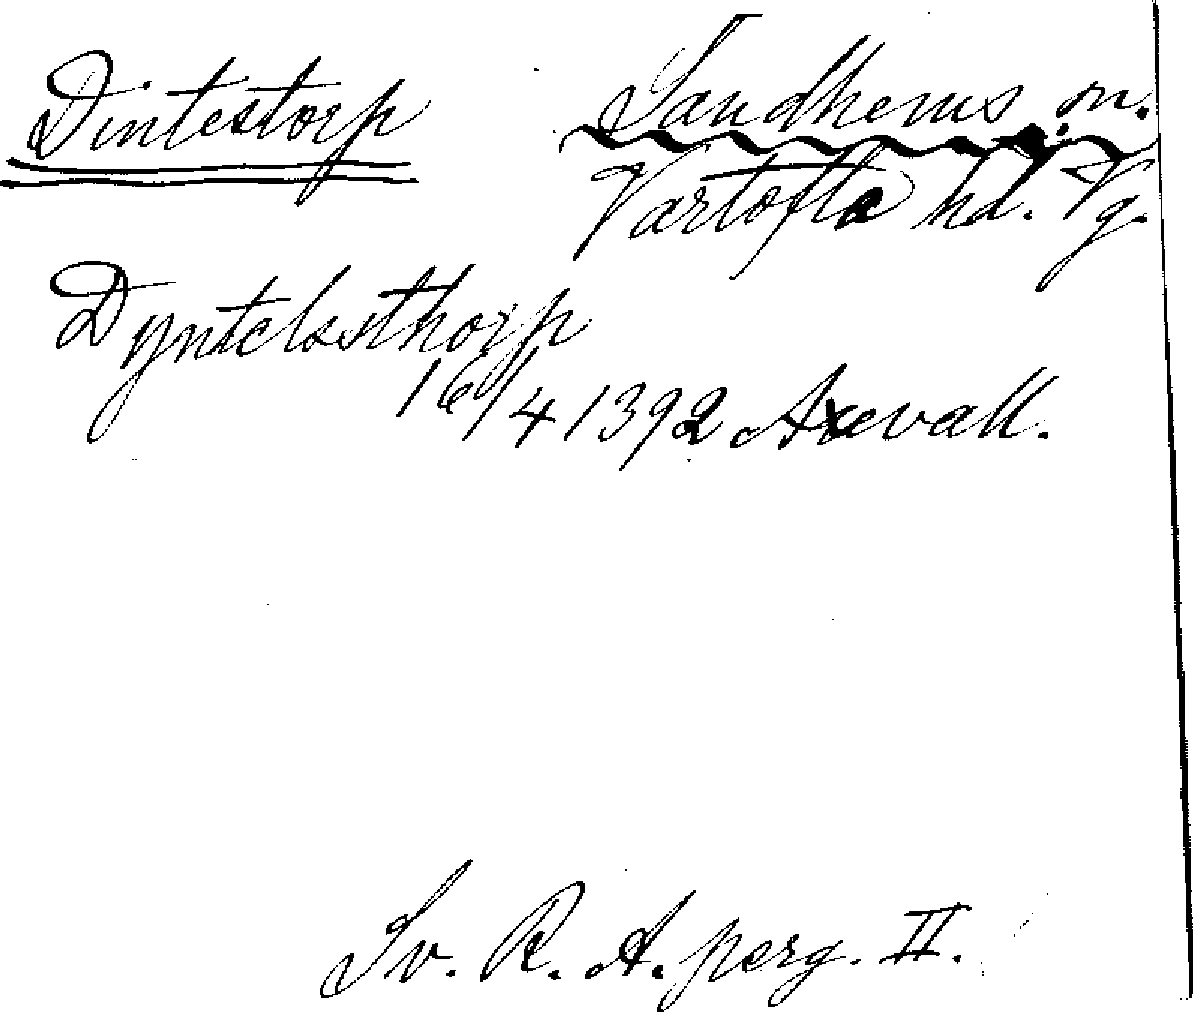 Dintestorp Sandhems sn.
Vartofta hd. Vg.
Dyntelssthorp
16/4 1392 Axevall.
Sv. R. A. perg. II.